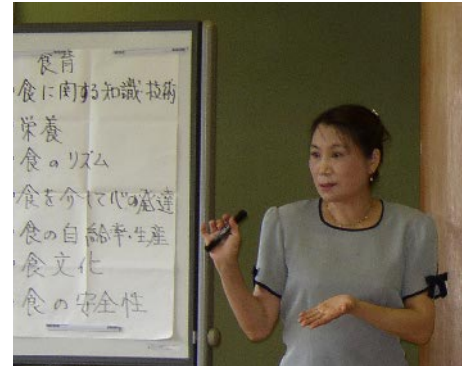 食育
食に関する知識・技術
栄養
食のリズム
食を介して心の発達
食の自給率・生産
食文化
食の安全性